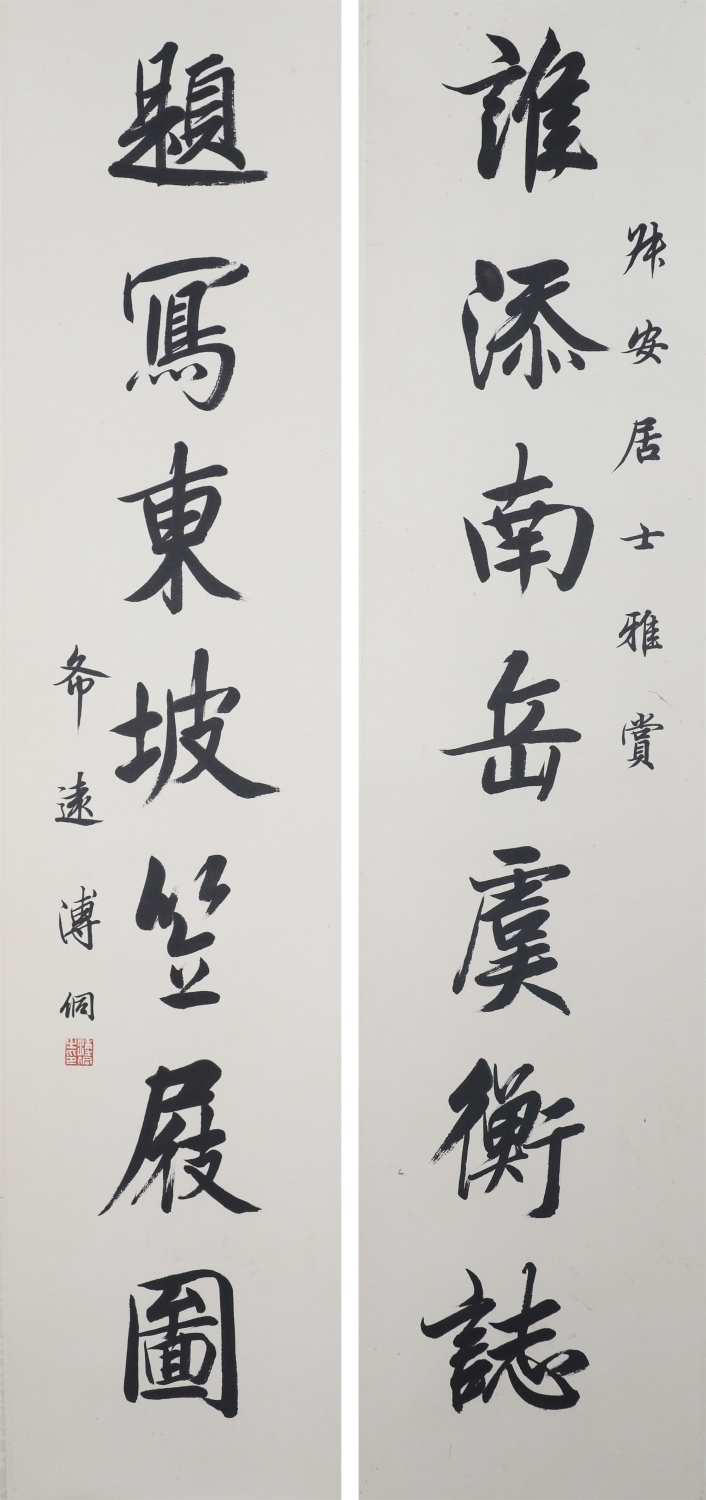 安居士雅賞
誰添南岳虞衡誌
題寫東坡笠屐圖
希遠溥侗